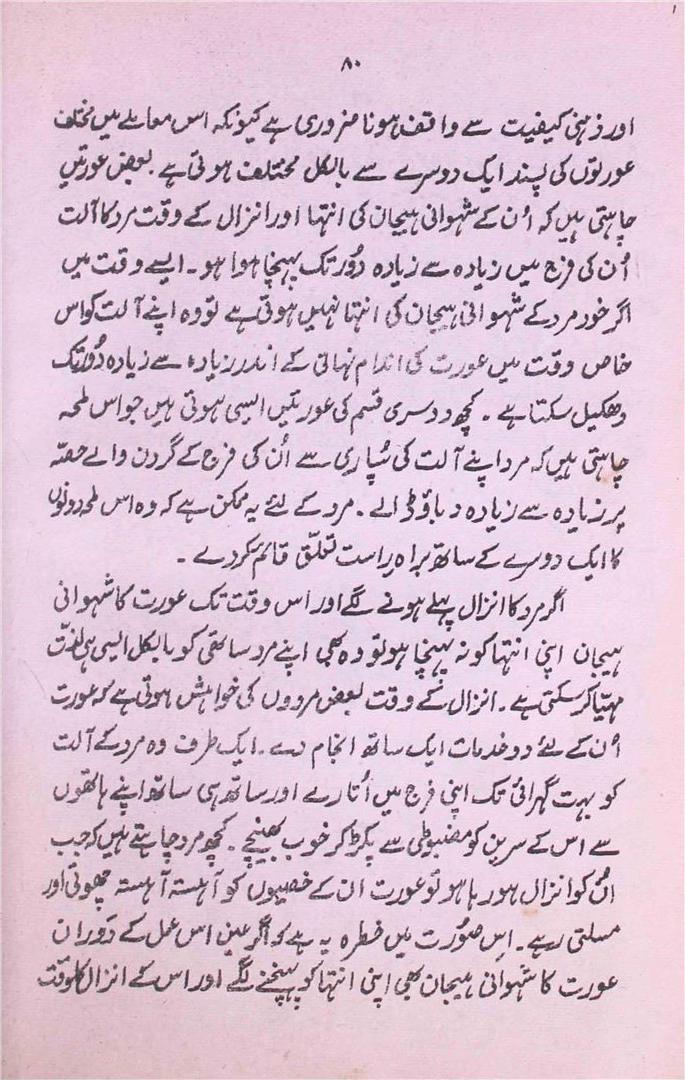 ۱
۸۰
اور ذہنی کیفیت سے واقف ہونا ضروری ہے کیونکہ اس معاملے میں مختلف
عورتوں کی پسند ایک دوسرے سے بالکل مختلف ہوتی ہے۔ بعض عورتیں
چاہتی ہیں کہ اُن کے شہوانی ہیجان کی انتہا اور انزال کے وقت مرد کا آلت
اُن کی فرج میں زیادہ سے زیادہ دُور تک پہنچا ہوا ہو۔ ایسے وقت میں
اگر خود مرد کے شہوانی ہیجان کی انتہا نہیں ہوتی ہے تو وہ اپنے آلت کو اس
خاص وقت میں عورت کی اندام نہانی کے اندر زیادہ سے زیادہ دُور تک
دھکیل سکتا ہے۔ کچھ دوسری قسم کی عورتیں ایسی ہوتی ہیں جو اس لمحہ
چاہتی ہیں کہ مرد اپنے آلت کی سُپاری سے اُن کی فرج کے گردن والے حصّہ
پر زیادہ سے زیادہ دباؤ ڈالے۔ مرد کے لئے یہ ممکن ہے کہ وہ اس لمحہ دونوں
کا ایک دوسرے کے ساتھ براہ راست تعلّق قائم کر دے۔
اگر مرد کا انزال پہلے ہونے لگے اور اس وقت تک عورت کا شہوانی
ہیجان اپنی انتہا کو نہ پہنچا ہو تو وہ بھی اپنے مرد ساتھی کو بالکل ایسی ہی لذّت
مہیّا کر سکتی ہے۔ انزال کے وقت بعض مردوں کی خواہش ہوتی ہے کہ عورت
اُن کے لئے دو خدمات ایک ساتھ انجام دے۔ ایک طرف وہ مرد کے آلت
کو بہت گہرائی تک اپنی فرج میں اُتارے اور ساتھ ہی ساتھ اپنے ہاتھوں
سے اس کے سرین کو مضبوطی سے پکڑ کر خوب بھینچے۔ کچھ مرد چاہتے ہیں کہ جب
اُن کو انزال ہو رہا ہو تو عورت ان کے خصیوں کو آہستہ آہستہ چھوتی اور
مسلتی رہے۔ اِس صُورت میں خطرہ یہ ہے کہ اگر عین اس عمل کے دَوران
عورت کا شہوانی ہیجان بھی اپنی انتہا کو پہنچنے لگے اور اس کے انزال کا وقت